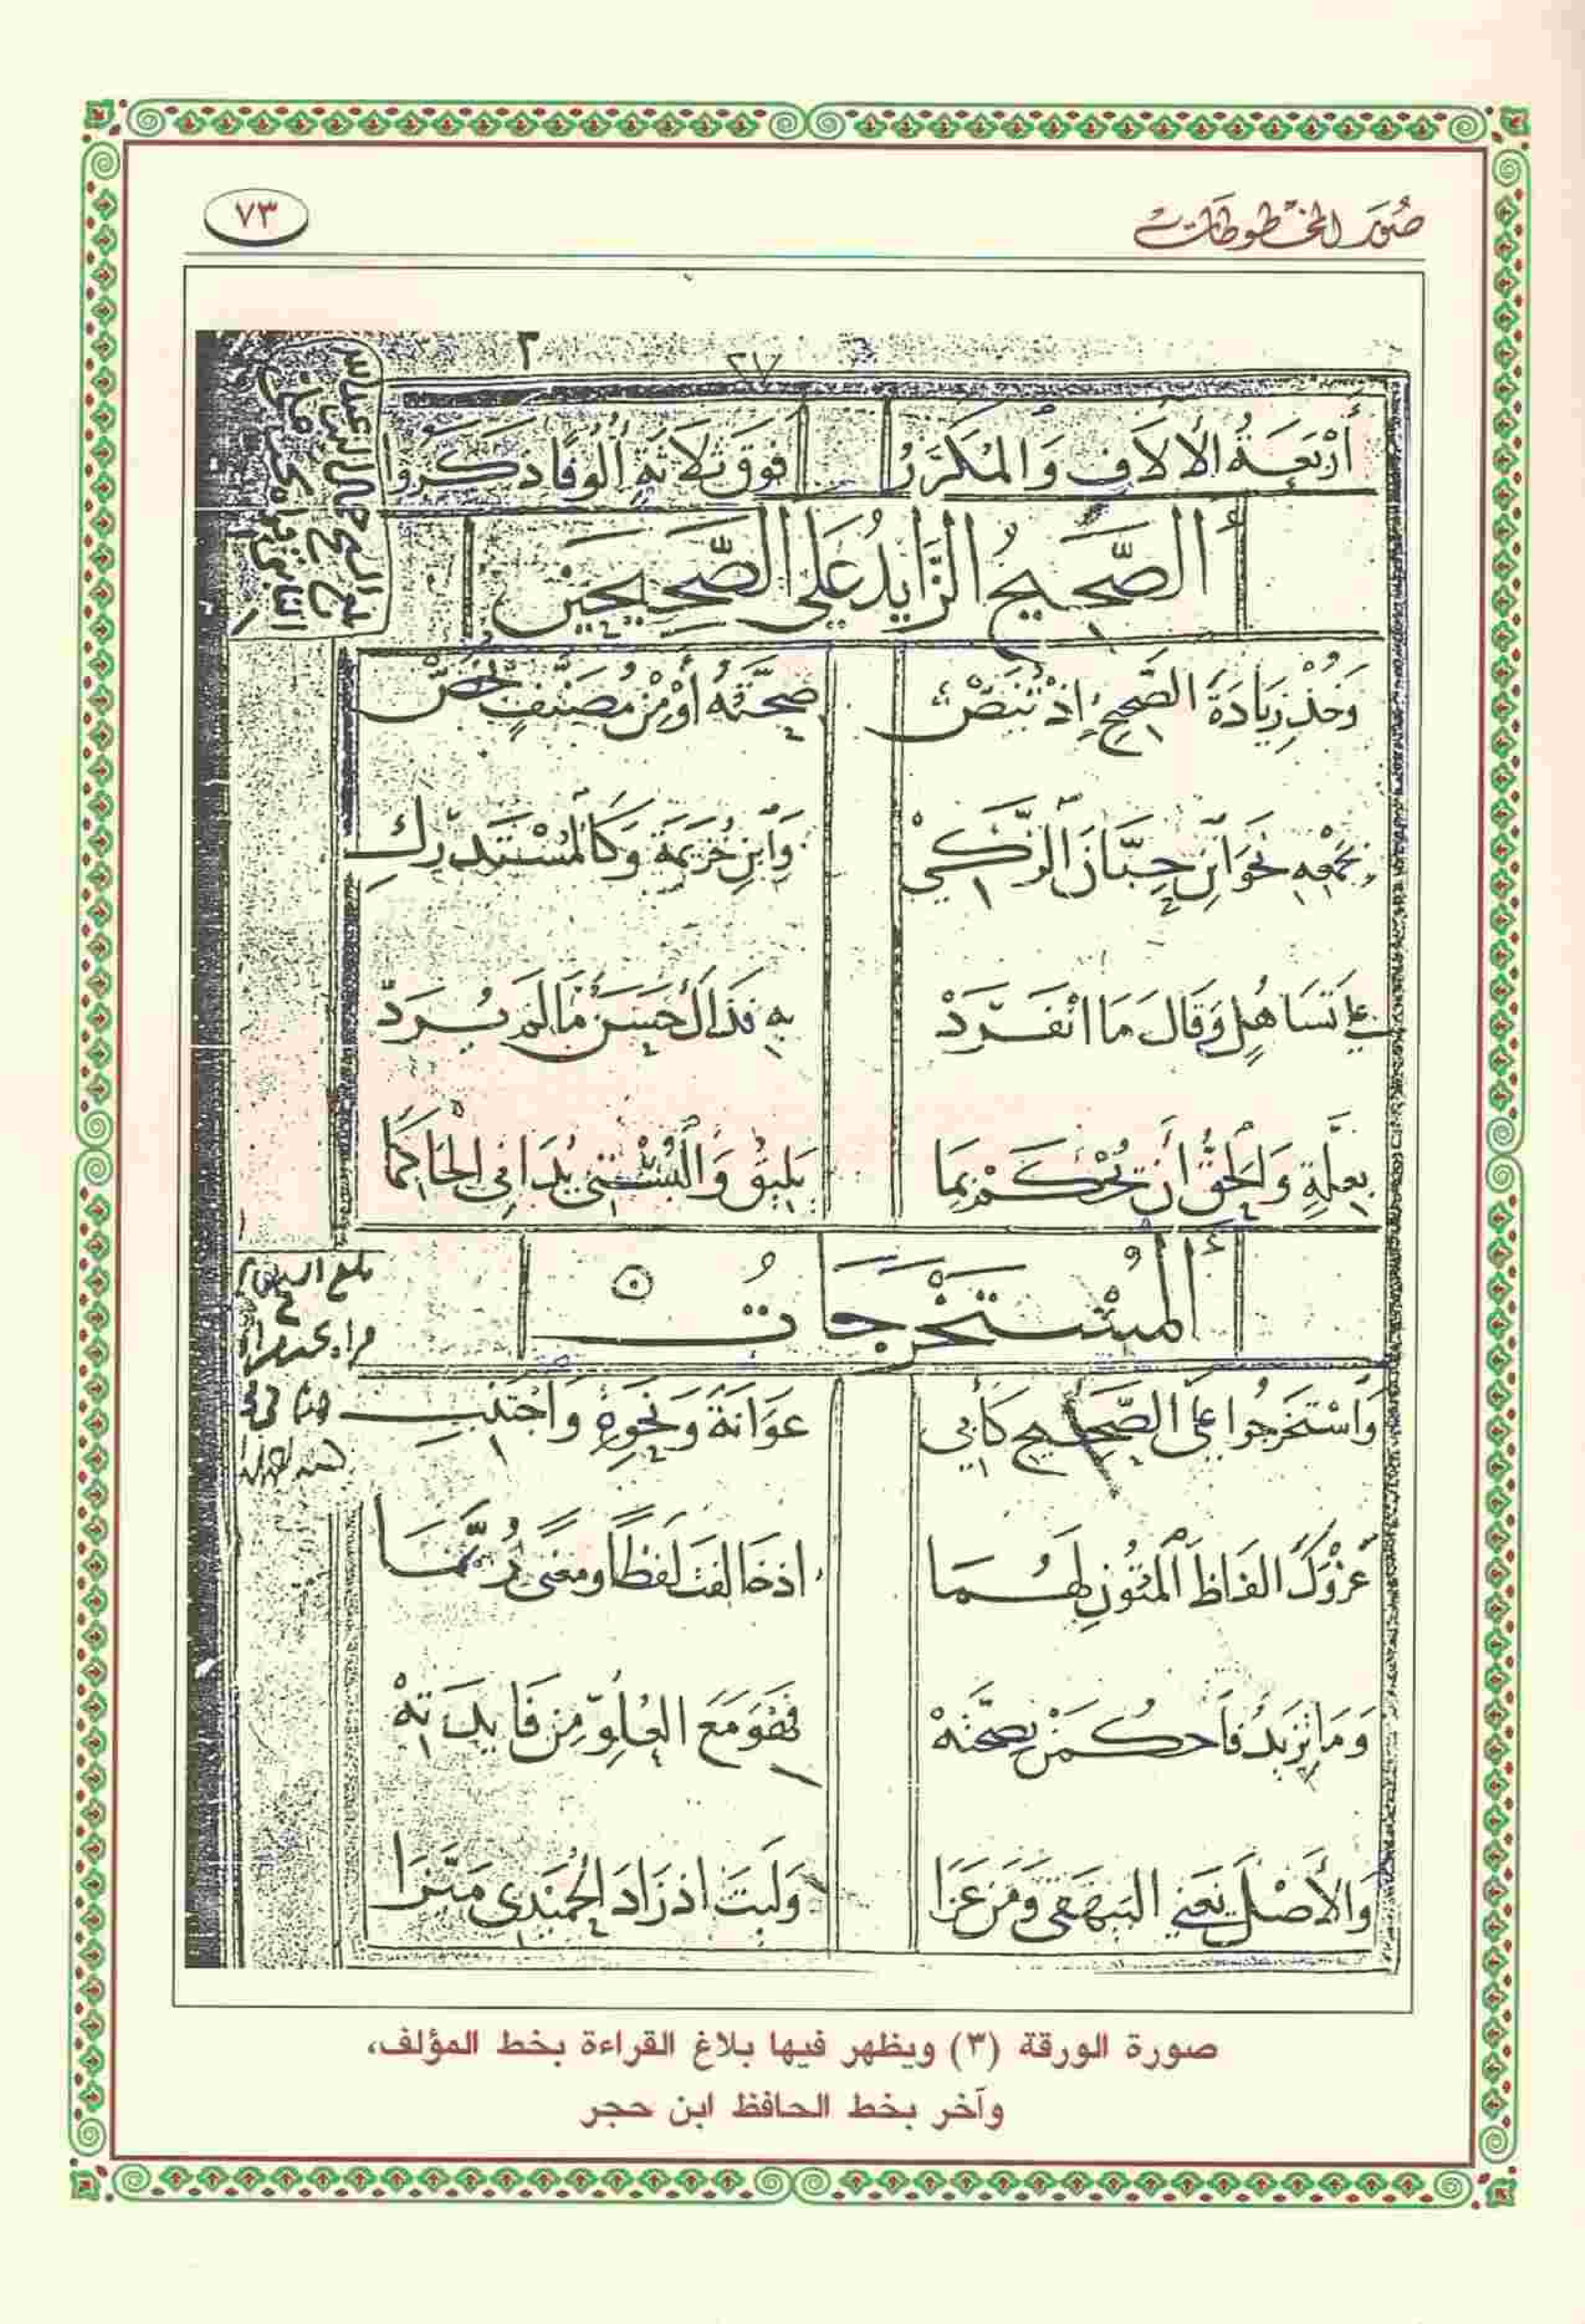 صُوَر المخطُوطَات
٧٣
٢
٢٧
أَرْبَعَةُ الْأَلَافِ وَالْمُكَرَّرُ فَوْقَ ثَلَاثَةٍ أُلُوفًا ذَكَرُوا
أَلصَّحِيحُ الزَّايِدُ عَلَى الصَّحِيحَيْنِ
وَخُذْ زِيَادَةَ الصَّحِيحِ إِذْ تُنَصّْ صِحَّتُهُ أَوْ مِنْ مُصَنِّفٍ يُخَصّْ
بِجَمْعِهِ نَحْوَ ابْنِ حِبَّانَ الزَّكِيْ وَابْنِ خُزَيْمَةَ وَكَالْمُسْتَدْرَكِ
عَلَى تَسَاهُلٍ وَقَالَ مَا انْفَرَدْ بِهِ فَذَاكَ حَسَنٌ مَا لَمْ يُرَدّْ
بِعِلَّةٍ وَالْحَقُّ أَنْ يُحْكَمْ بِمَا يَلِيقُ وَالْبُسْتِيْ يُدَانِي الْحَاكِمَا
أَلْمُسْتَخْرَجَاتُ
وَاسْتَخْرَجُوا عَلَى الصَّحِيحِ كَأَبِي عَوَانَةَ وَنَحْوِهِ وَاجْتَنِبِ
عَزْوَكَ أَلْفَاظَ الْمُتُونِ لَهُمَا اذ خَالَفَتْ لَفْظًا وَمَعْنًى رُبَّمَا
وَمَا يَزِيدُ فَاحْكُمَنْ بِصِحَّتِهْ فَهْوَ مَعَ الْعُلُوِّ مِنْ فَايِدَتِهْ
وَالْأَصْلَ يَعْنِي الْبَيْهَقِي وَمَنْ عَزَا وَلَيْتَ اذ زَادَ الْحُمَيْدِي مَيَّزَا
صورة الورقة (٣) ويظهر فيها بلاغ القراءة بخط المؤلف،
وآخر بخط الحافظ ابن حجر